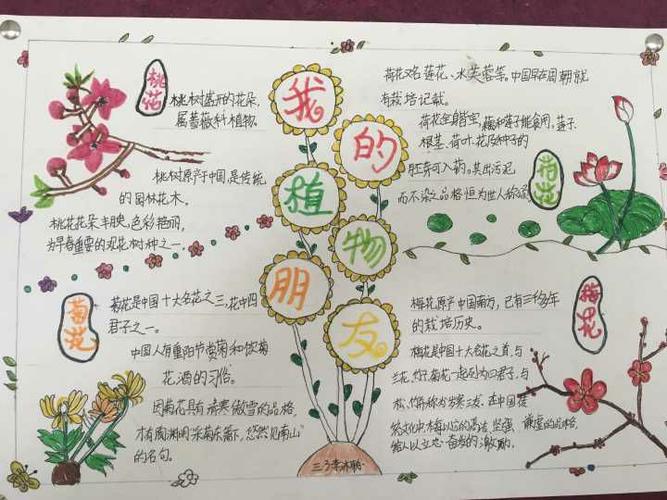 我的植物朋友
桃花
桃树盛开的花朵,
属蔷薇科植物.
桃树原产中国,是传统
的园林花木。
桃花花朵丰腴,色彩艳丽,
为早春重要的观花树种之一.
荷花
荷花又名莲花、水芙蓉等。中国早在周朝就
有栽培记载。
荷花全身皆宝,藕和莲子能食用,莲子、
根茎、荷叶、花及种子的
胚芽可入药。其出污泥
而不染之品格恒为世人称颂
菊花
菊花是中国十大名花之三,花中四
君子之一。
中国人有重阳节赏菊和饮菊
花酒的习俗。
因菊花具有清寒傲雪的品格,
才有陶渊明"采菊东篱下,悠然见南山"
的名句。
梅花
梅花原产中国南方,已有三千多年
的栽培历史。
梅花是中国十大名花之首,与
兰花、竹子、菊花一起列为四君子,与
松、竹并称为岁寒三友。在中国传
统文化中梅以它的高洁、坚强、谦虚的品格,
给人以立志奋发的激励。